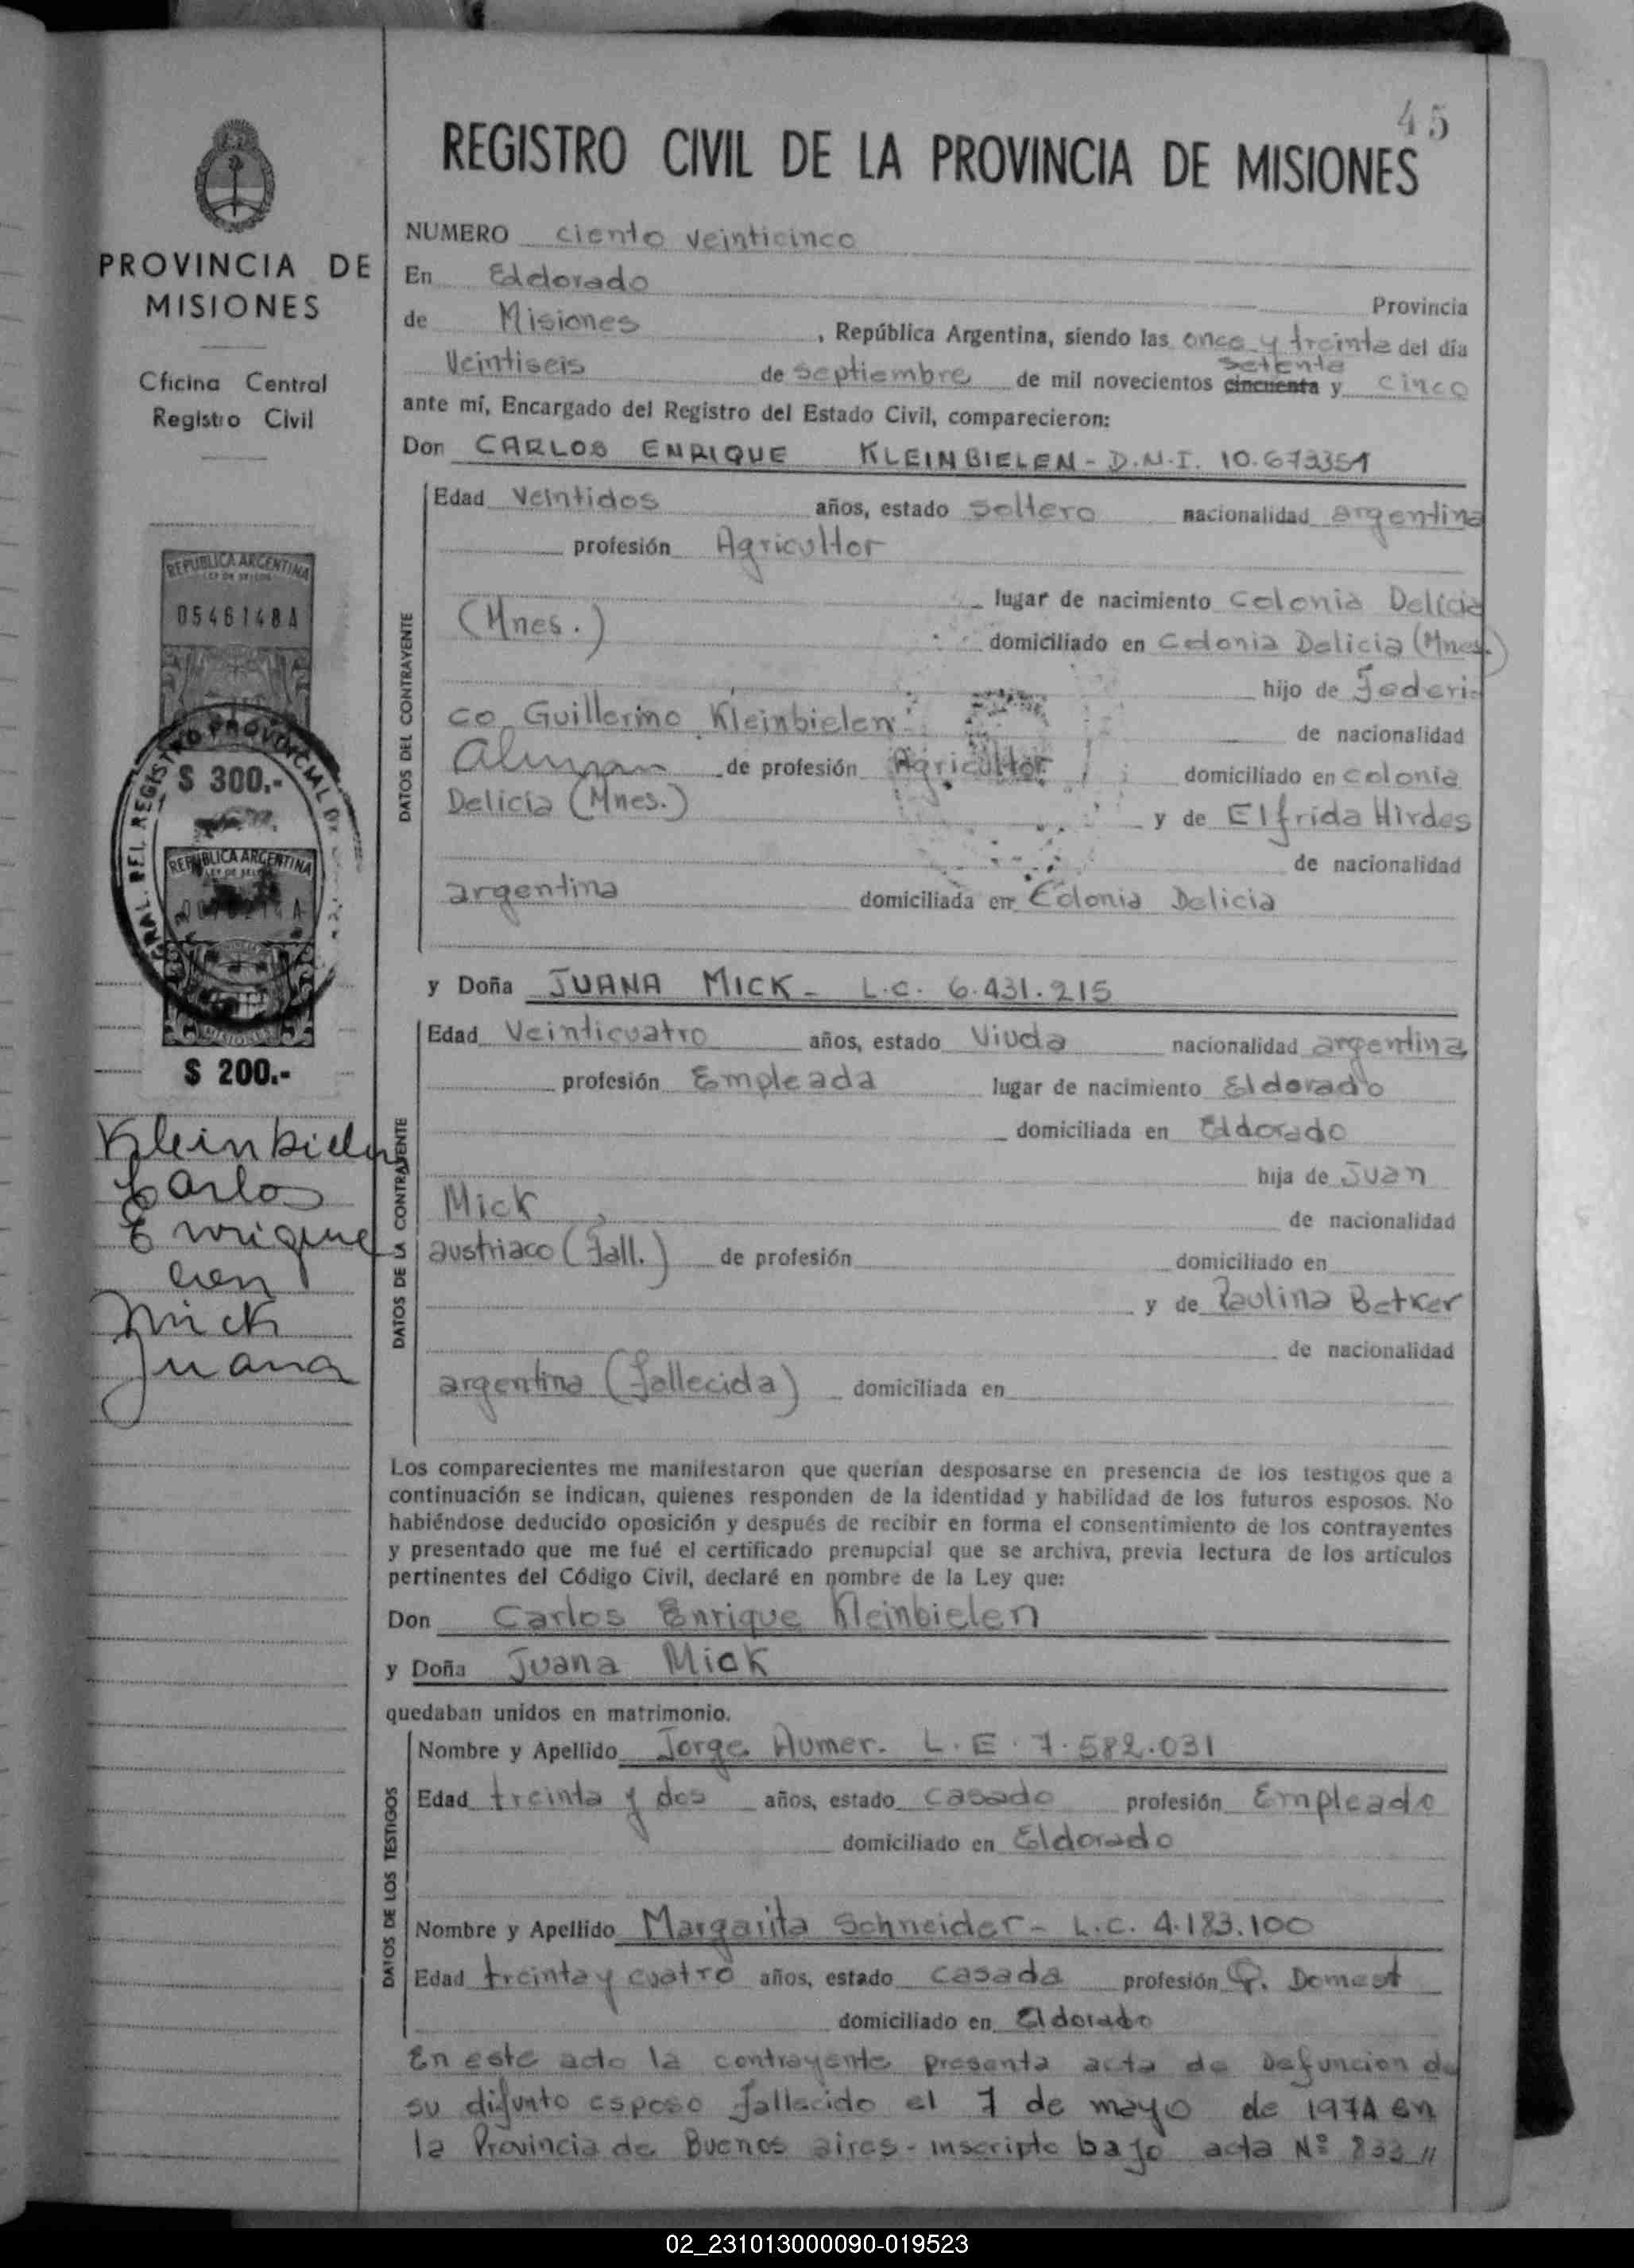 45
REGISTRO CIVIL DE LA PROVINCIA DE MISIONES
PROVINCIA DE
MISIONES
Oficina Central
Registro Civil
REPUBLICA ARGENTINA
LEY DE SELLOS
0546148A
$ 300.-
REPUBLICA ARGENTINA
MISIONES
$ 200.-
Kleinbielen
Carlos
Enrique
con
Mick
Juana
NUMERO ciento veinticinco
En Eldorado Provincia
de Misiones, República Argentina, siendo las once y treinta del día
Veintiseis de septiembre de mil novecientos cincuenta setenta y cinco
ante mí, Encargado del Registro del Estado Civil, comparecieron:
Don CARLOS ENRIQUE KLEINBIELEN - D.N.I. 10.673351
DATOS DEL CONTRAYENTE
Edad Veintidos años, estado soltero nacionalidad argentina
profesión Agricultor
lugar de nacimiento Colonia Delicia
(Mnes.) domiciliado en Colonia Delicia (Mnes.)
hijo de Federi-
co Guillermo Kleinbielen de nacionalidad
Aleman de profesión Agricultor domiciliado en colonia
Delicia (Mnes.) y de Elfrida Hirdes
de nacionalidad
argentina domiciliada en Colonia Delicia
y Doña JUANA MICK - L.C. 6.431.215
DATOS DE LA CONTRAYENTE
Edad Veinticuatro años, estado Viuda nacionalidad argentina
profesión Empleada lugar de nacimiento Eldorado
domiciliada en Eldorado
hija de Juan
Mick de nacionalidad
austriaco (Fall.) de profesión domiciliado en
y de Paulina Betker
de nacionalidad
argentina (fallecida) domiciliada en
Los comparecientes me manifestaron que querían desposarse en presencia de los testigos que a
continuación se indican, quienes responden de la identidad y habilidad de los futuros esposos. No
habiéndose deducido oposición y después de recibir en forma el consentimiento de los contrayentes
y presentado que me fué el certificado prenupcial que se archiva, previa lectura de los artículos
pertinentes del Código Civil, declaré en nombre de la Ley que:
Don Carlos Enrique Kleinbielen
y Doña Juana Mick
quedaban unidos en matrimonio.
DATOS DE LOS TESTIGOS
Nombre y Apellido Jorge Humer. L.E. 7.582.031
Edad treinta y dos años, estado casado profesión Empleado
domiciliado en Eldorado
Nombre y Apellido Margarita Schneider - L.C. 4.183.100
Edad treinta y cuatro años, estado casada profesión Q. Domest
domiciliado en Eldorado
En este acto la contrayente presenta acta de Defuncion de
su difunto esposo fallecido el 7 de mayo de 1974 en
la Provincia de Buenos aires - inscripto bajo acta Nº
02_231013000090-019523